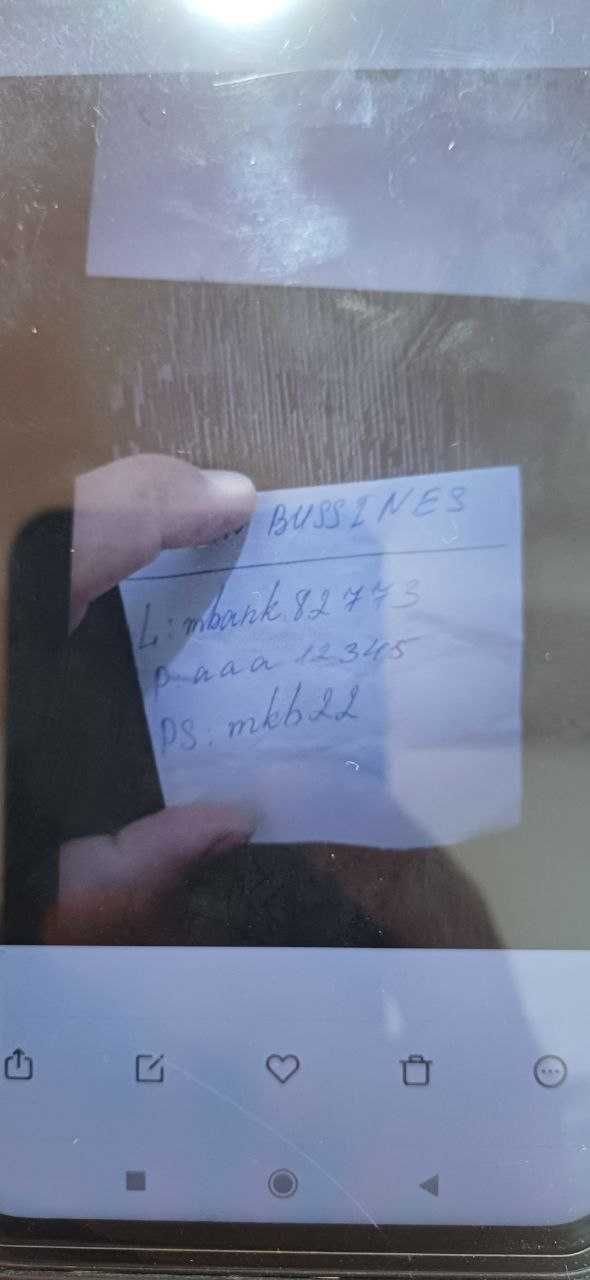 BUSSINES
L: mbank 82773
P-aaa 12345
PS: mkb22